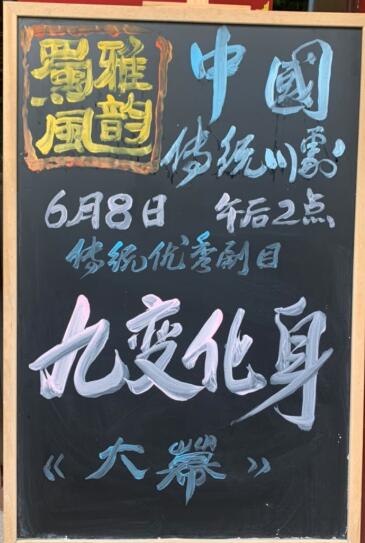 蜀風雅韵
中國
傳统川劇
6月8日 午后2点
傳统优秀剧目
九变化身
《大幕》